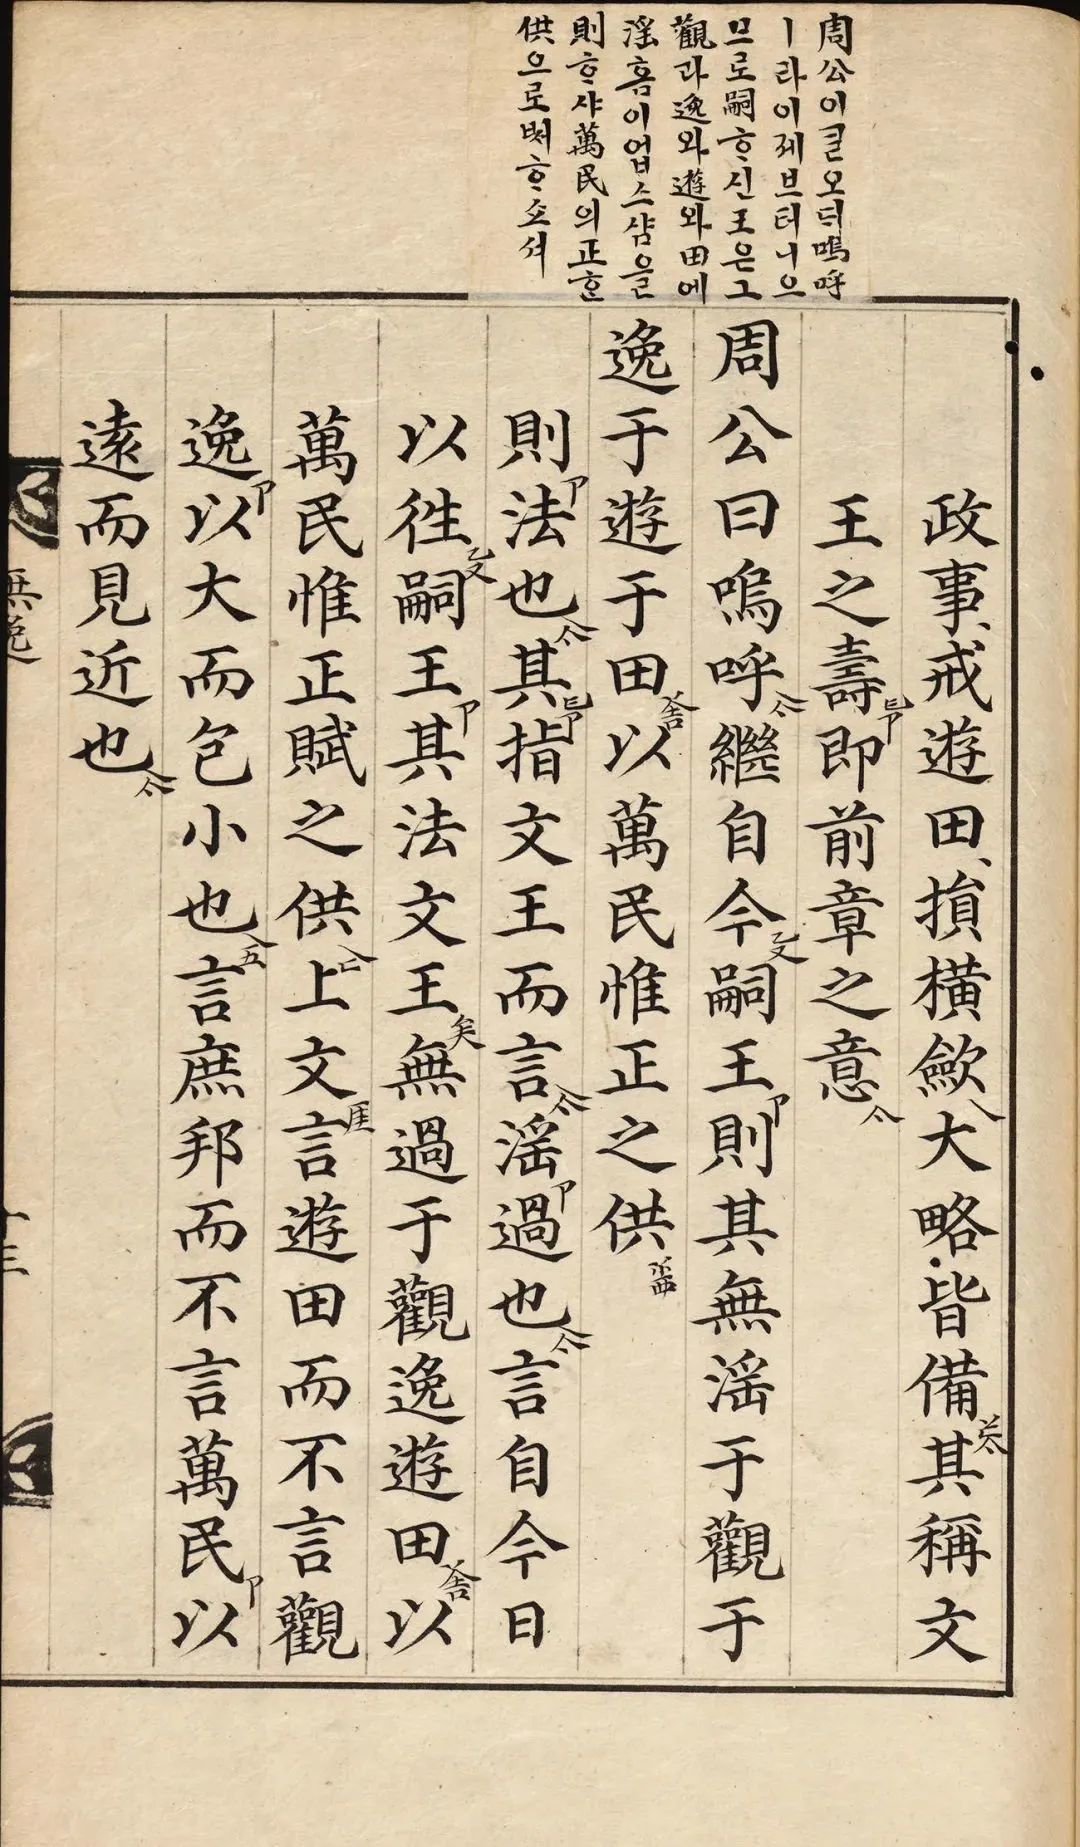 周公이ᄀᆞᆯ오ᄃᆡ嗚呼
ㅣ라이제브터니으
므로嗣ᄒᆞ신王은그
觀과逸와遊와田에
淫홈이업스샴을
則ᄒᆞ샤萬民의正ᄒᆞᆫ
供으로ᄡᅥᄒᆞ쇼셔
政事、戒遊田、損橫斂大略皆備其稱文
王之壽即前章之意
周公曰嗚呼繼自今嗣王則其無淫于觀于
逸于遊于田以萬民惟正之供
則法也其指文王而言淫過也言自今日
以徃嗣王其法文王無過于觀逸遊田以
萬民惟正賦之供上文言遊田而不言觀
逸以大而包小也言庶邦而不言萬民以
遠而見近也
無逸
十三